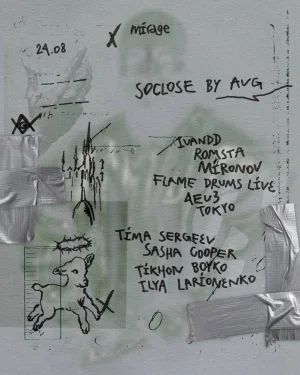 24.08
mirage
SOCLOSE BY AVG
IVANDD
ROMSTA
MIRONOV
FLAME DRUMS LIVE
AEU3
TOKYO
TIMA SERGEEV
SASHA COOPER
TIKHON BOYKO
ILYA LARIONENKO